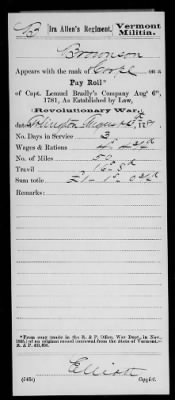 B | Ira Allen's Regiment, | Vermont Militia.
Brownson
Appears with the rank of Corpl on a
Pay Roll*
of Capt. Lemuel Bradly's Company Aug 6th,
1781, As Established by Law,
(Revolutionary War,)
dated Arlington
No. Days in Service 3
Wages & Rations
No. of Miles 50
Travil
Sum totle
Remarks:
*From copy made in the R. & P. Office, War Dept., in Nov.,
of an original record borrowed from the State of Vermont.—
R. & P.
Elliott
Copyist.